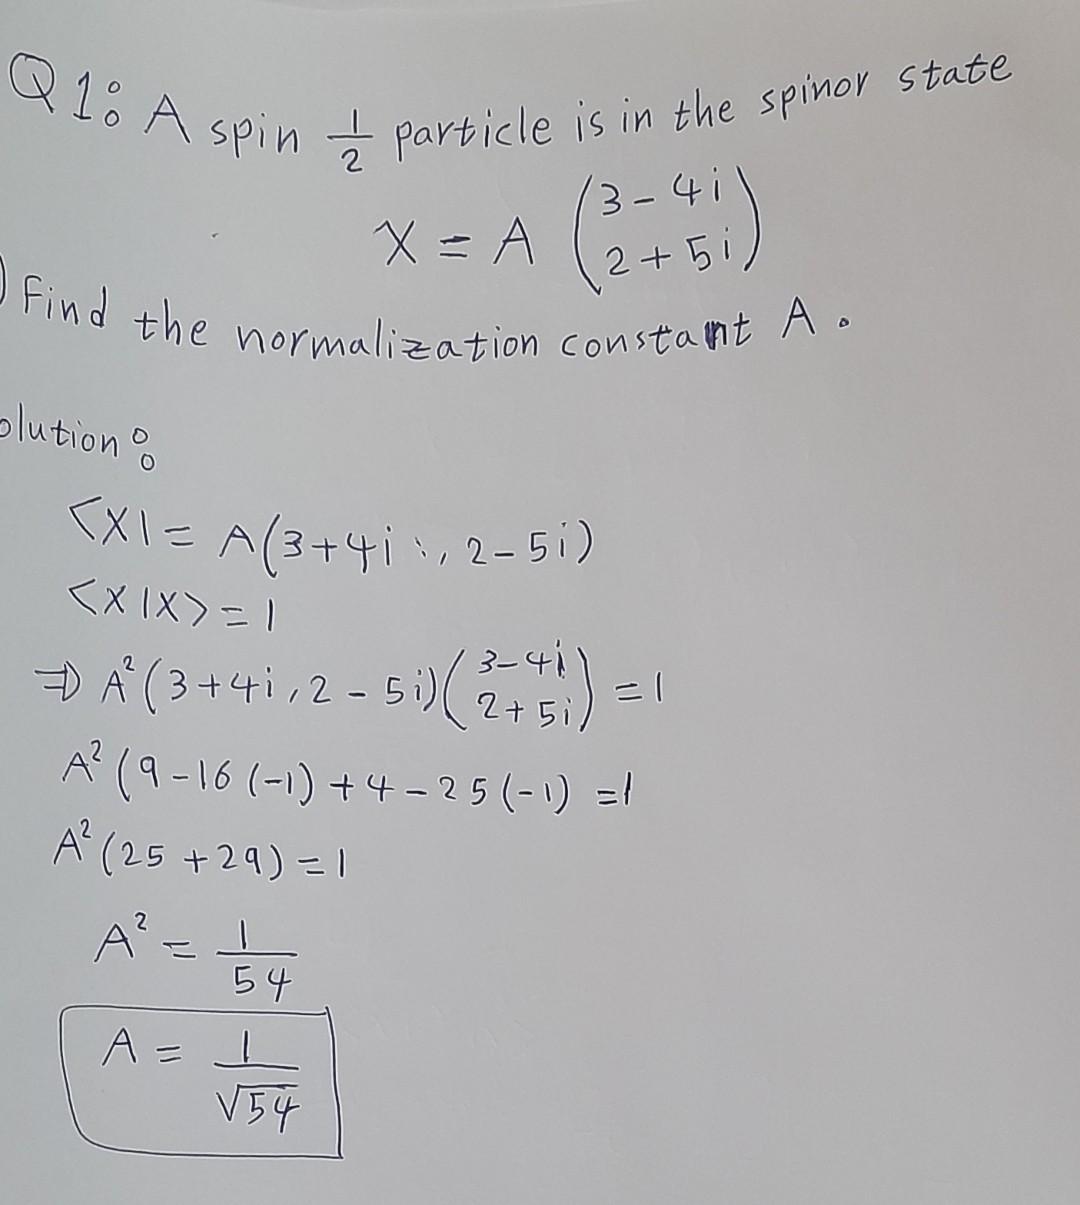 Q1: A spin 1/2 particle is in the spinor state
X = A (3-4i
2+5i)
) Find the normalization constant A.
olution:
<X| = A(3+4i , 2-5i)
<X|X> = 1
⇒ A²(3+4i, 2-5i)(3-4i
2+5i) = 1
A²(9-16(-1)+4-25(-1) = 1
A²(25+29) = 1
A² = 1/54
A = 1/√54